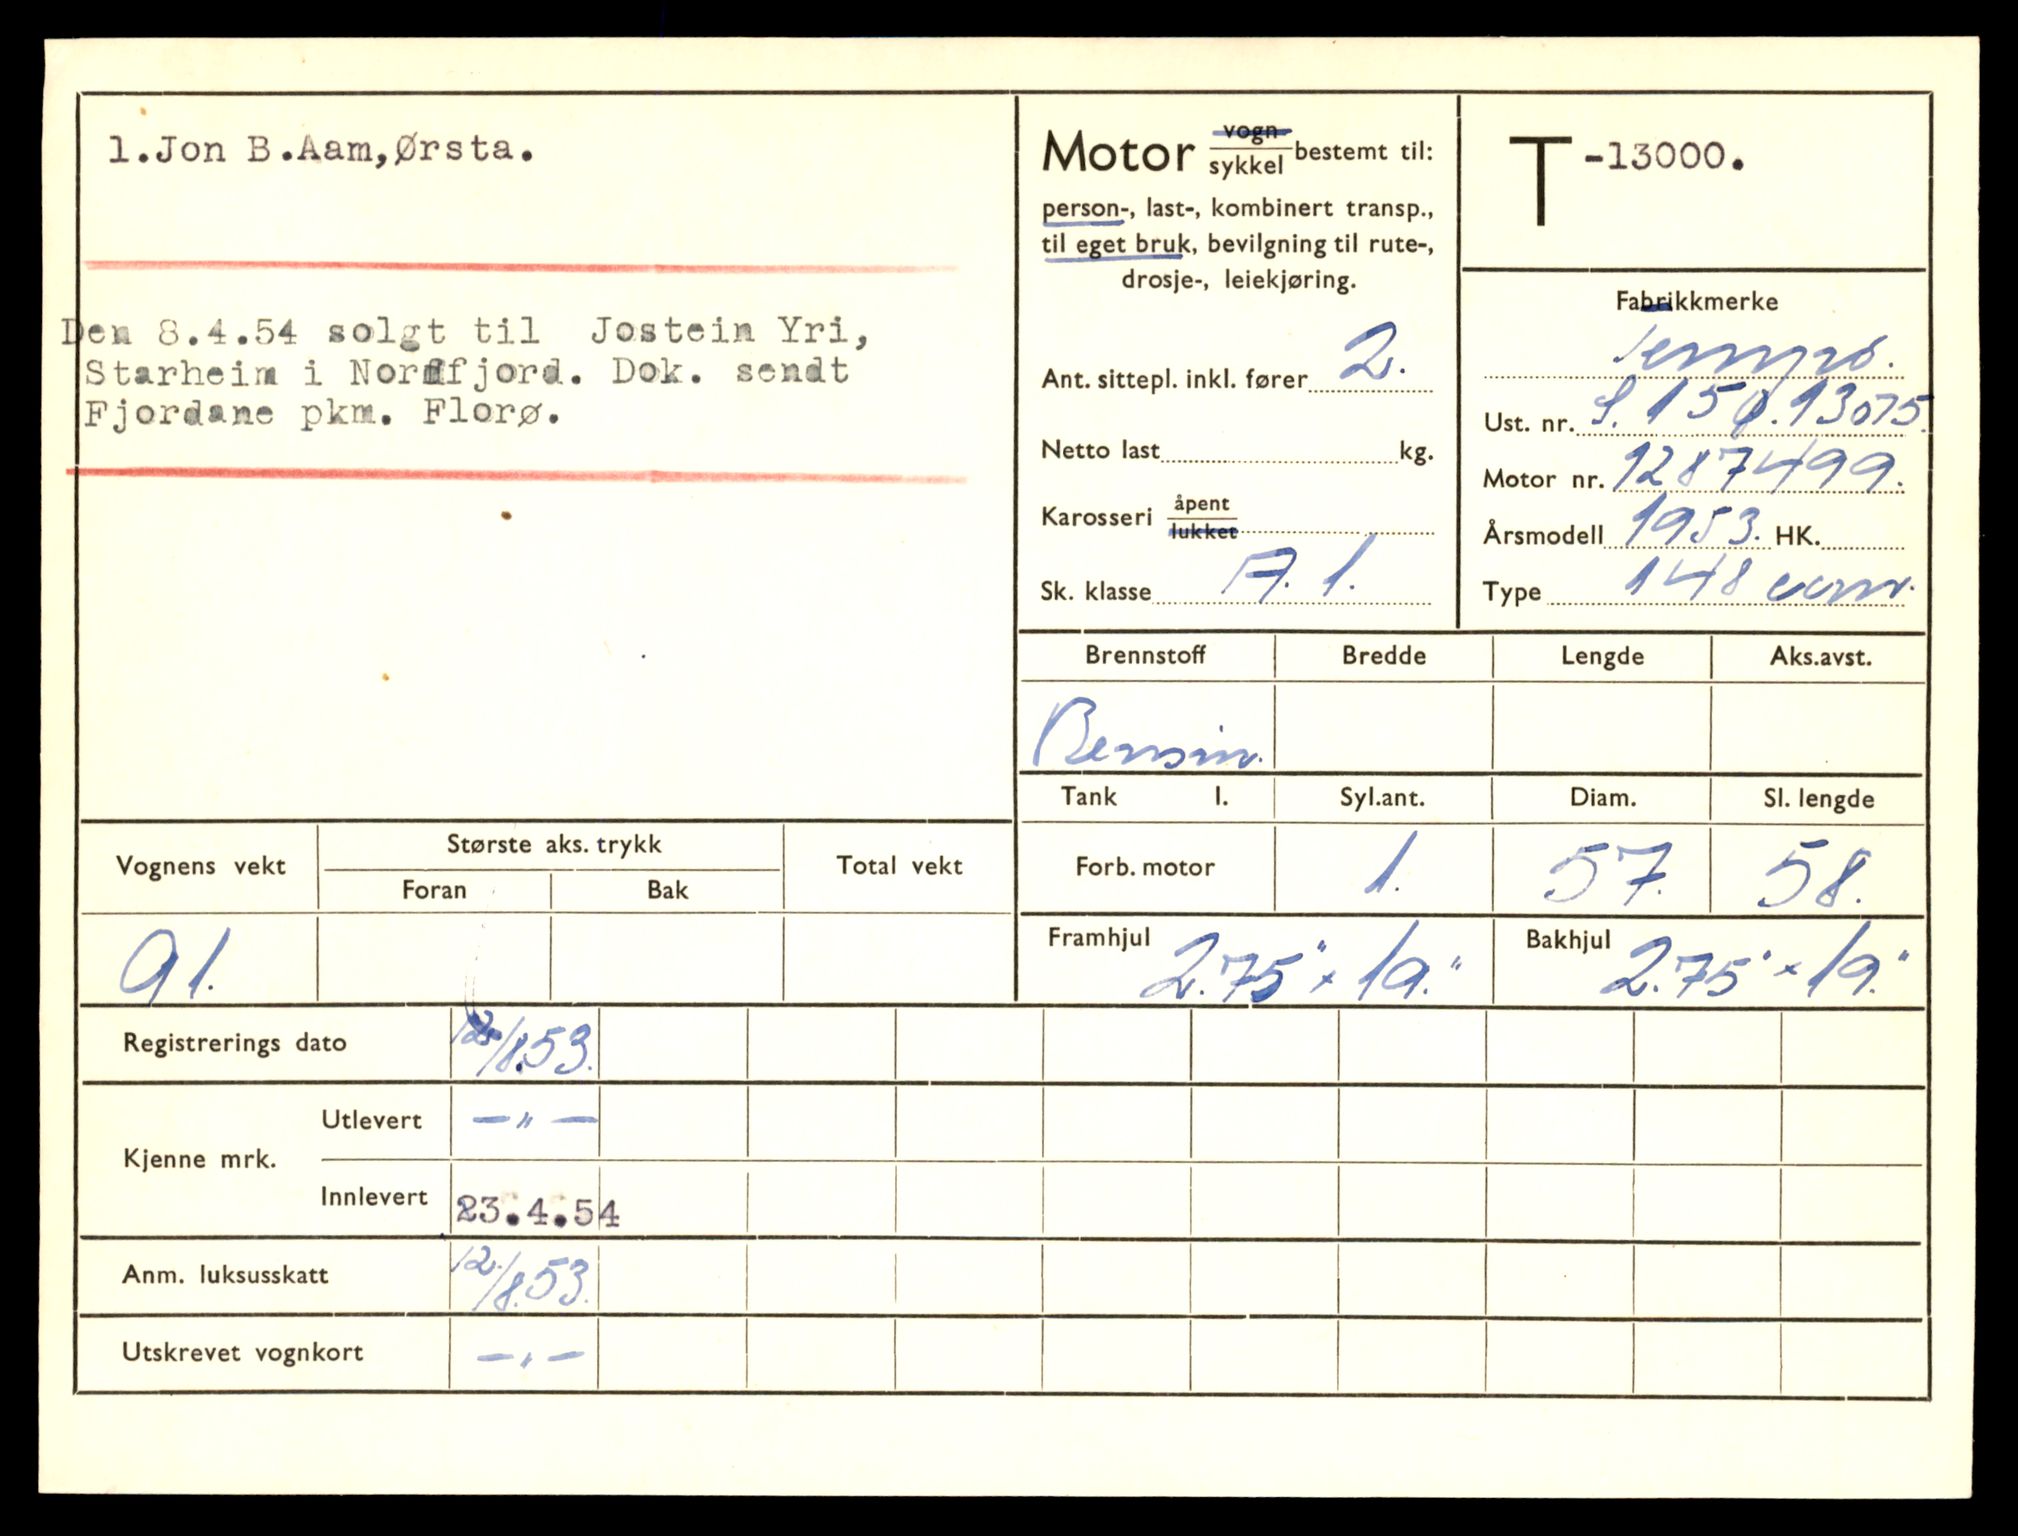 1.Jon B.Aam,Ørsta.
Den 8.4.54 solgt til Jostein Yri,
Starheim i Nordfjord. Dok. sendt
Fjordane pkm. Florø.
Motor vogn/sykkel bestemt til:
person-, last-, kombinert transp.,
til eget bruk, bevilgning til rute-,
drosje-, leiekjøring.
Ant. sittepl. inkl. fører 2.
Netto last kg.
Karosseri åpent/lukket
Sk. klasse A. 1.
T -13000.
Fabrikkmerke
Tempo.
Ust. nr. S. 150.13075.
Motor nr. 1287499.
Årsmodell 1953. HK.
Type 148 ccm.
Brennstoff Bredde Lengde Aks.avst.
Bensin.
Tank l. Syl.ant. Diam. Sl. lengde
Forb. motor 1. 57. 58.
Framhjul 2.75" x 19." Bakhjul 2.75" x 19."
Vognens vekt Største aks. trykk Total vekt
Foran Bak
91.
Registrerings dato 12/8.53.
Kjenne mrk. Utlevert —"—
Innlevert 23.4.54
Anm. luksusskatt 12/8.53.
Utskrevet vognkort —"—